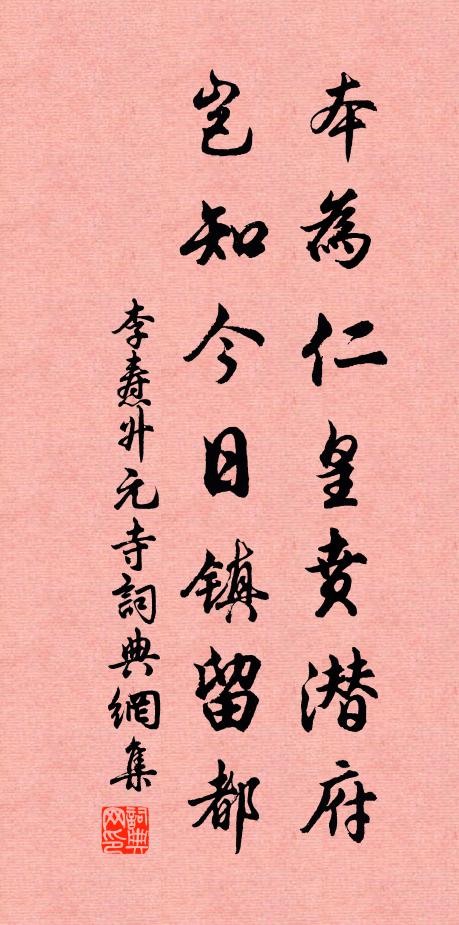 本為仁皇賁潜府
豈知今日鎮留都
李焘升元寺詞典網集
詞典
网印